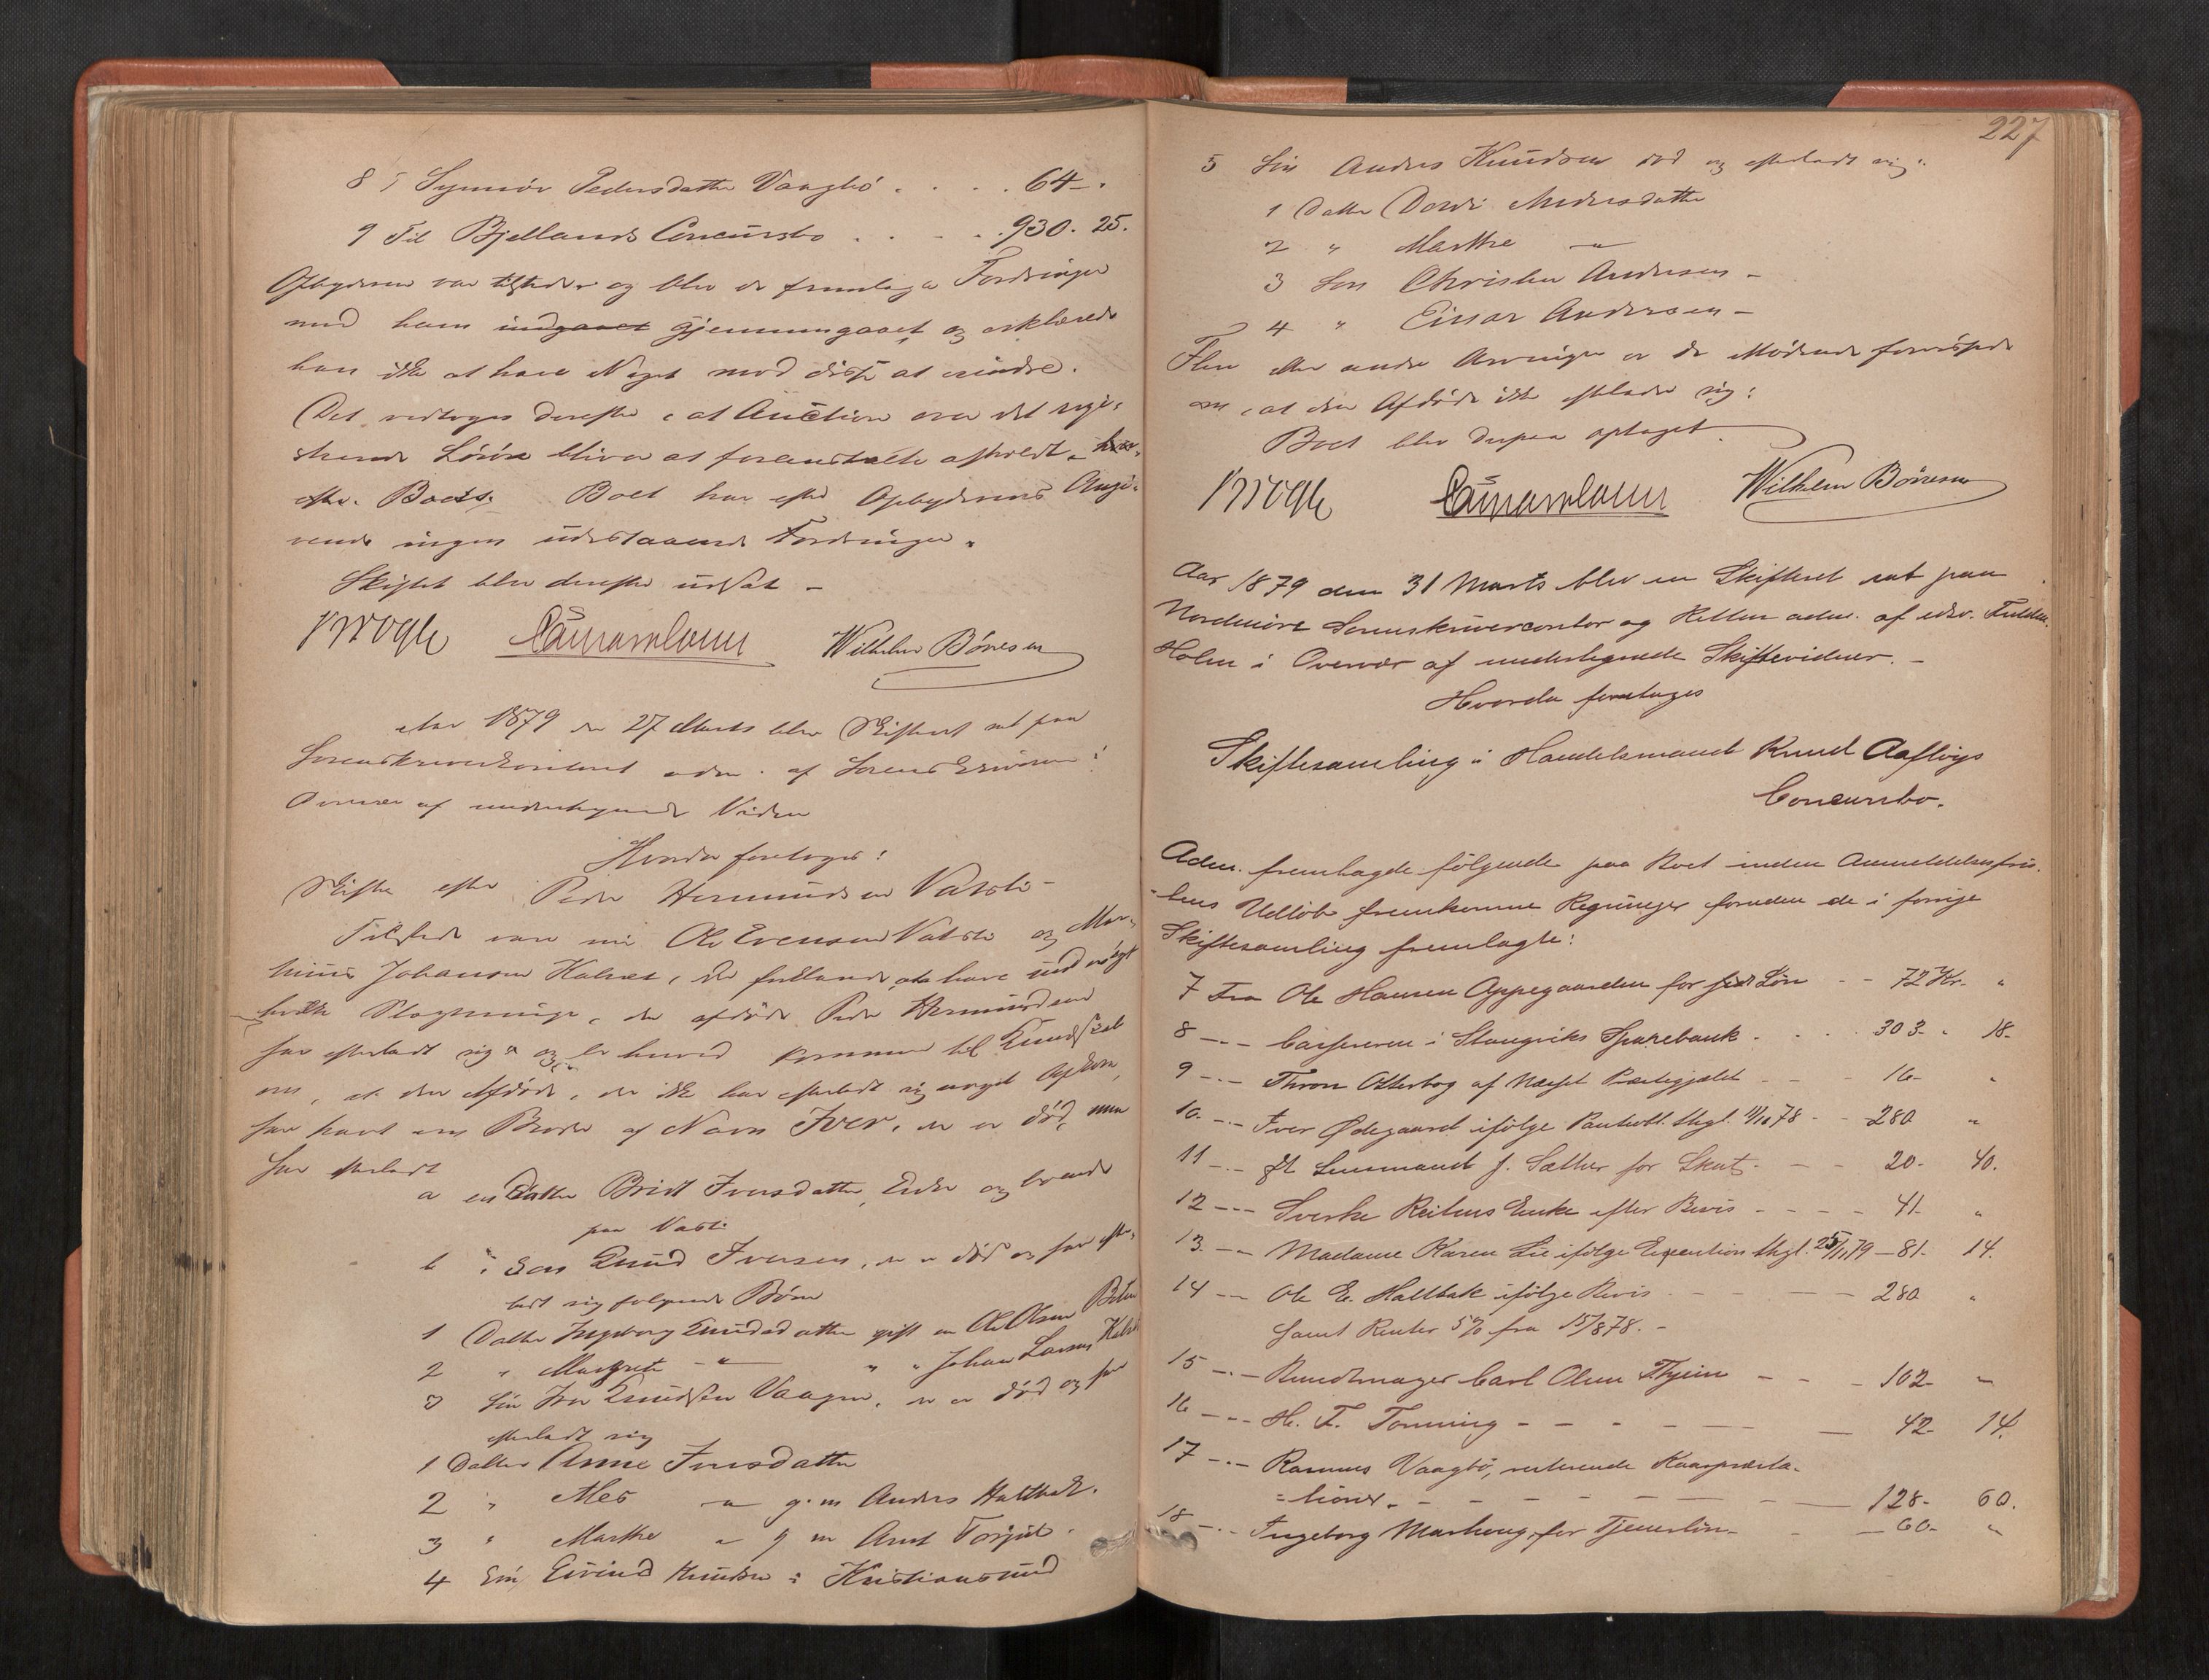 8 Synnöv Pedersdatter Vaagbö . . . . 64 - .
9 Til Bjellands Concursbo . . . . 930. 25.
Opbyderen var tilstede og blev de fremlagte Fordringer
med ham indgaaet gjennemgaaet og erklærede
han ikke at have Noget mod disse at erindre.
Det vedtoges derefter, at Auction over det regi-
strerede Løsøre bliver at foranstalte afholdt
Boets. Boet har efter Opbyderens Angi-
vende ingen udestaaende Fordringer.
Skiftet blev derefter udsat -
Krogh Wilhelm Bönesen
Aar 1879 den 27 Marts blev Skifteret sat paa
Sorenskriverkontoret adm. af Sorenskriveren i
Overvær af undertegnede Vidner
Hvorda foretoges:
Skifte efter Peder Hermundsen Vatsli -
Tilstede vare nu Ole Evensen Vatsli og Mor-
Johansen Halset, der at have
Peder Hermundsen
har efterladt sig og er herved kommen til Kundskab
om, at den Afdöde, der ikke har efterladt sig noget Afkom,
har havt en Broder af Navn Iver, der er död, men
har efterladt
a en Datter Brit Iversdatter, Enke og boende
paa
b " Sön Knud Iversen, der er död og har efter-
ladt sig følgende Börn
1 Datter Ingeborg Knudsdatter gift m Ole Olsen
2 " Margrete - " - " " Johan Larsen
3 Sön Iver Knudsen Vaagen, der er död og har
efterladt sig
1 Datter Anne Iversdatter
2 " - " - g. m Anders Halthek.
3 " Marthe - " - g m Arnt
4 Sön Eivind Knudsen i Kristianssund
227
5 Sön Anders Knudsen död og efterladt sig:
1 Datter Dordi Andersdatter
2 " Marthe - " -
3 Sön Christen Andersen -
4 " Einar Andersen -
Flere eller andre Arvinger er de Mödende forvissede
om, at den Afdöde ikke efterlader sig:
Boet blev derpaa optaget.
Krogh Wilhelm Bönesen
Aar 1879 den 31 Marts blev en Skifteret sat paa
Nordmöre Sorenskrivercontor og Retten adm. af edsv. Fuldm.
Holm i Overvær af undertegnede Skiftevidner. -
Hvorda foretoges
Skiftesamling i Handelsmand Knud Aaflöys
Concursbo.
Adm. fremlagde følgende paa Boet inden Anmeldelsesfris-
tens Udlöb fremkomne Regninger foruden de i forrige
Skiftesamling fremlagte:
7 Fra Ole Hansen Oppegaarden for Lön - - 72 Kr. "
8 - " - Cassereren i Stangviks Sparebank . . . 303. 18.
9 - " - Thron Otterbog af Næsset Præstegjæld - - - 16- "
10. - " - Iver Ødegaard ifölge Panteobl. thgl. 11/10 78 - - 280 "
11 - " - Lensmand J. Sæther for Skat. - - - 20. 40.
12 - " - Sverke Reitens Enke efter Bevis - - - - 41. "
13. - " - Madame Karen Lie ifölge Execution thgl. 25/1 79 - 81. 14.
14 - " - Ole E. Haltbak ifölge Bevis . - - - 280 "
samt Renter 5% fra 15/8 78. -
15 - " - Bundtmager Carl Olsen Thjeim - - - 102 "
16 - " - H. F. Tonning - - - - - - 42- 14.
17 - " - Rasmus Vaagbö, resterende Kaarpræsta-
=tioner. - - - - - - - 128- 60.
18 - " - Ingeborg Marhoug, for Tjenerlön - - 60- "